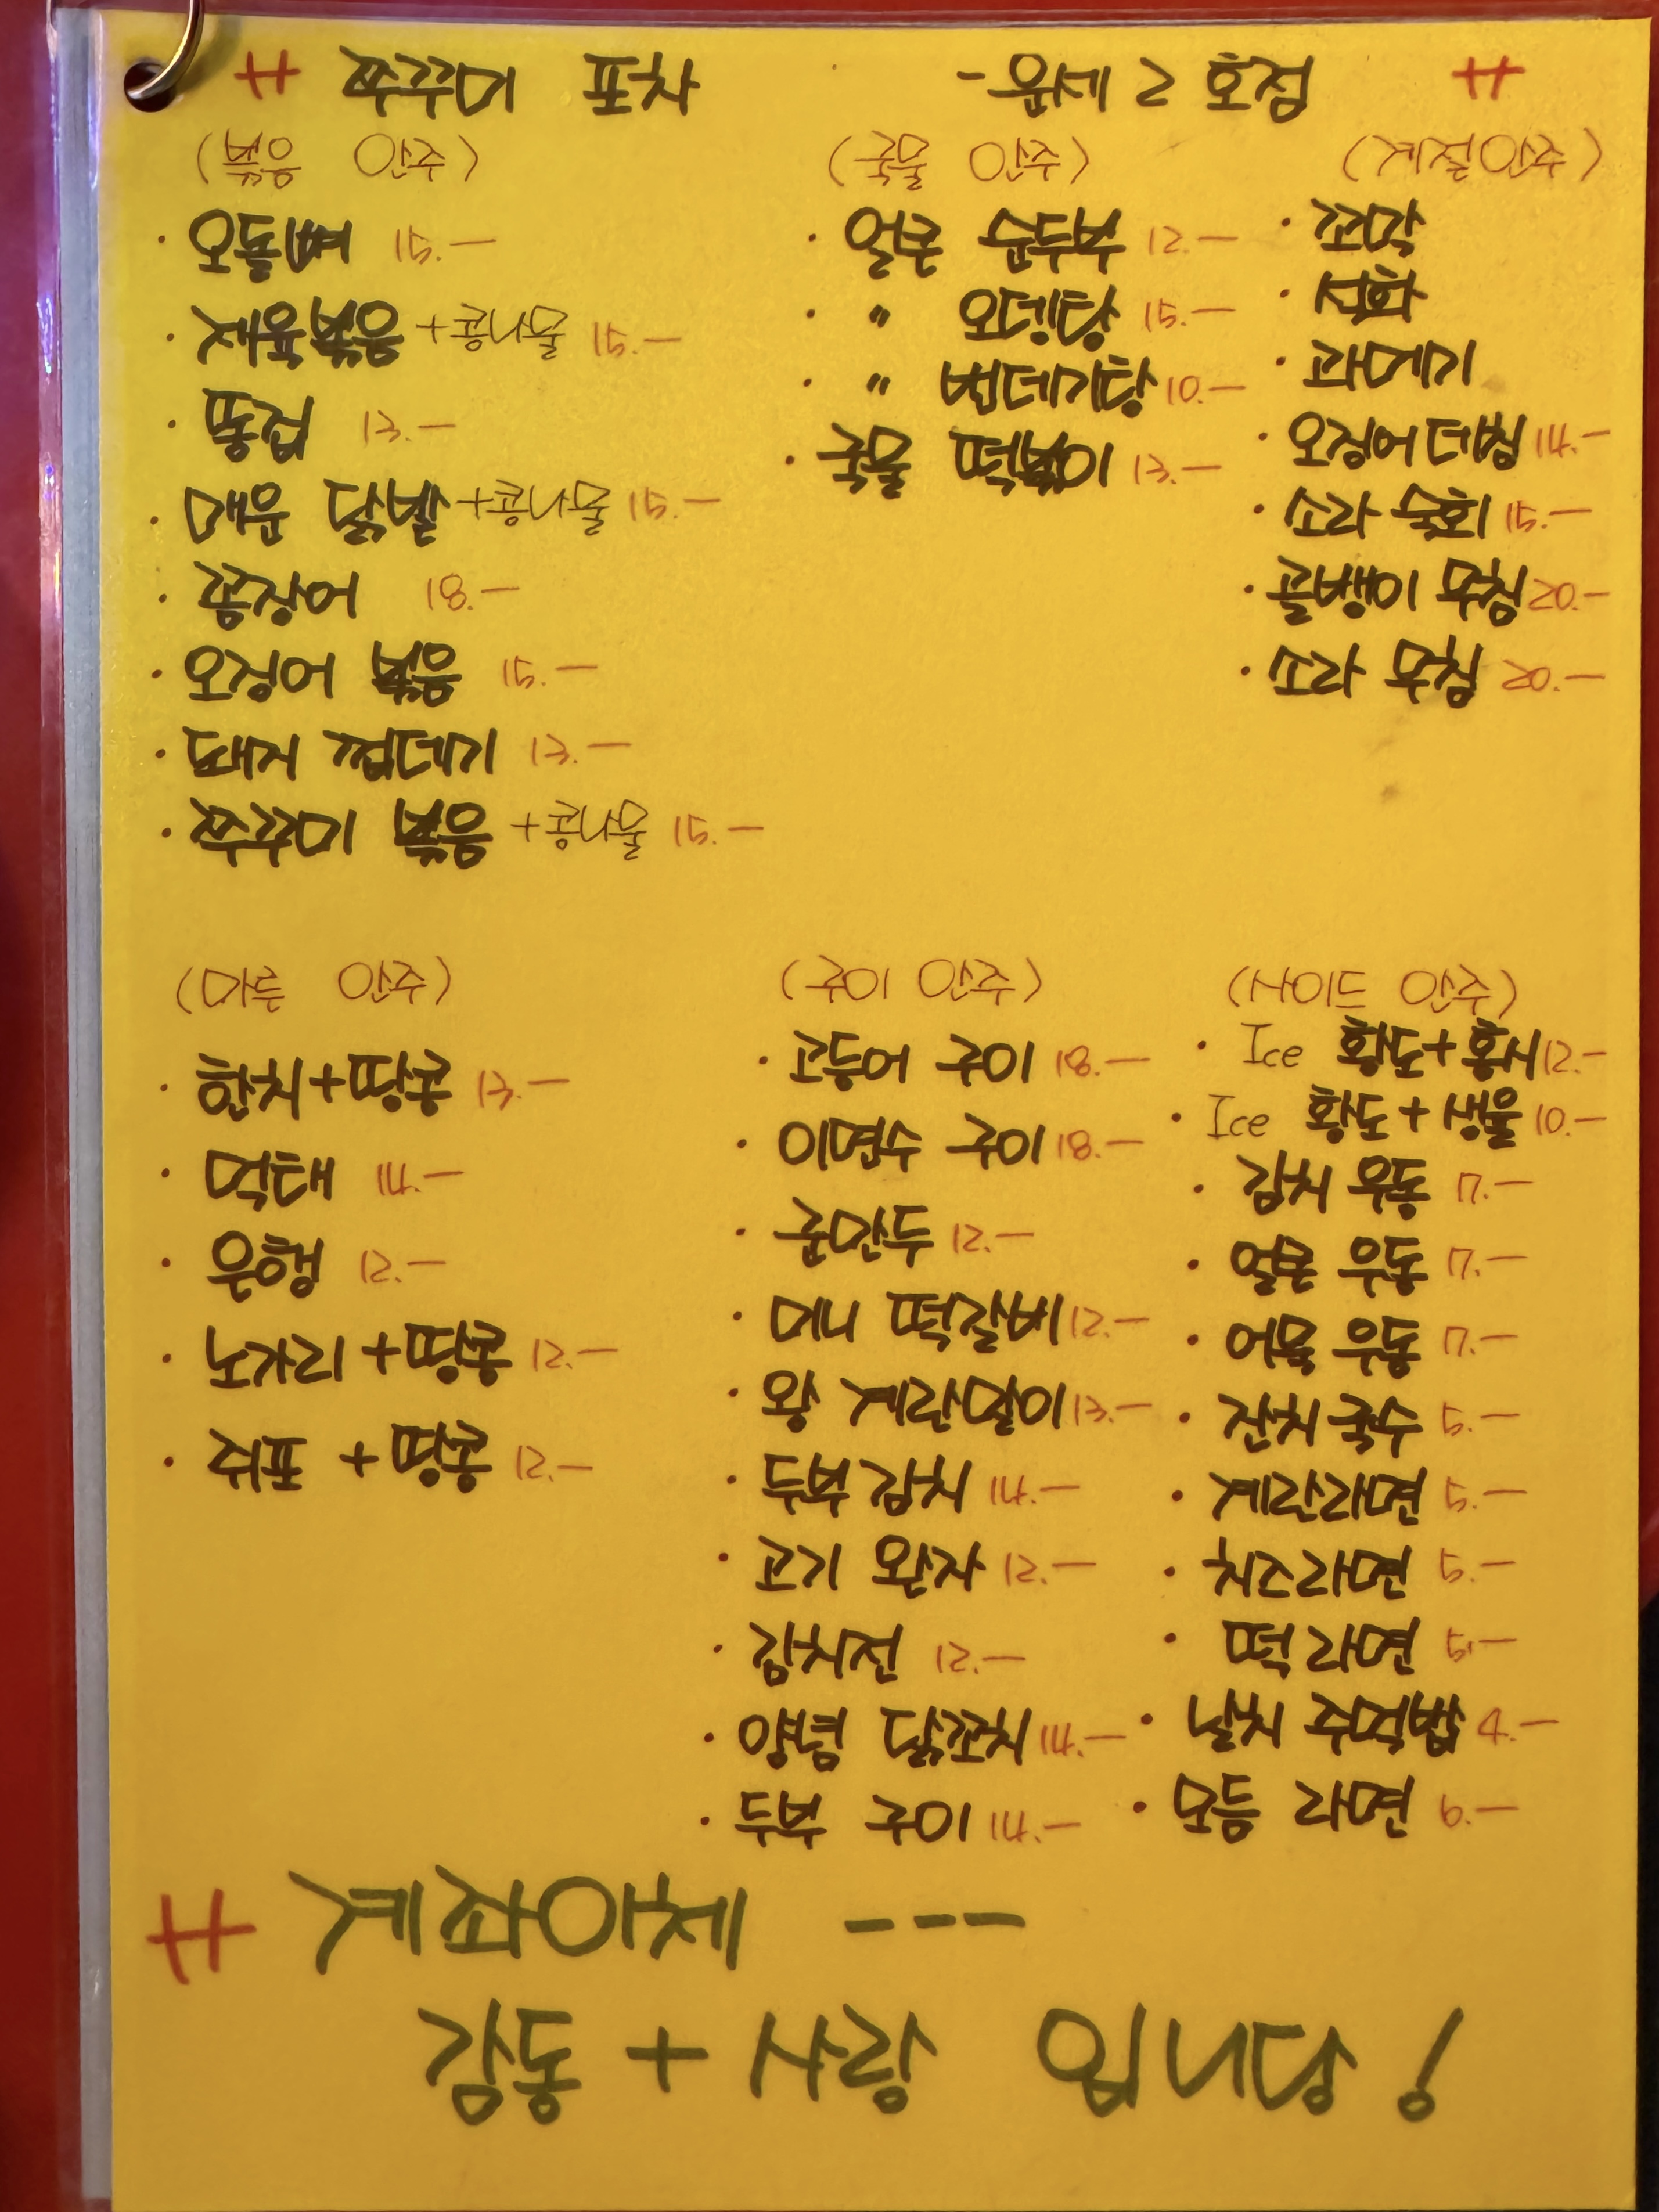 ++ 쭈꾸미 포차 - 운세 2호점 ++
(볶음 안주)
· 오돌뼈 15.—
· 제육볶음 +콩나물 15.—
· 똥집 13.—
· 매운 닭발 +콩나물 15.—
· 꼼장어 18.—
· 오징어 볶음 15.—
· 돼지 껍데기 13.—
· 쭈꾸미 볶음 +콩나물 15.—
(국물 안주)
· 얼큰 순두부 12.—
· 〃 오뎅탕 15.—
· 〃 번데기탕 10.—
· 국물 떡볶이 13.—
(계절안주)
· 꼬막
· 석화
· 과메기
· 오징어데침 14.—
· 소라 숙회 15.—
· 골뱅이 무침 20.—
· 소라 무침 20.—
(마른 안주)
· 한치+땅콩 13.—
· 먹태 14.—
· 은행 12.—
· 노가리+땅콩 12.—
· 쥐포 +땅콩 12.—
(구이 안주)
· 고등어 구이 18.—
· 이면수 구이 18.—
· 군만두 12.—
· 미니 떡갈비 12.—
· 왕 계란말이 13.—
· 두부김치 14.—
· 고기 완자 12.—
· 김치전 12.—
· 양념 닭꼬치 14.—
· 두부 구이 14.—
(사이드 안주)
· Ice 황도+홍시 12.—
· Ice 황도+생율 10.—
· 김치 우동 7.—
· 얼큰 우동 7.—
· 어묵 우동 7.—
· 잔치국수 5.—
· 계란라면 5.—
· 치즈라면 5.—
· 떡라면 5.—
· 날치 주먹밥 4.—
· 모듬 라면 6.—
++ 계좌이체 ---
감동 + 사랑 입니당!